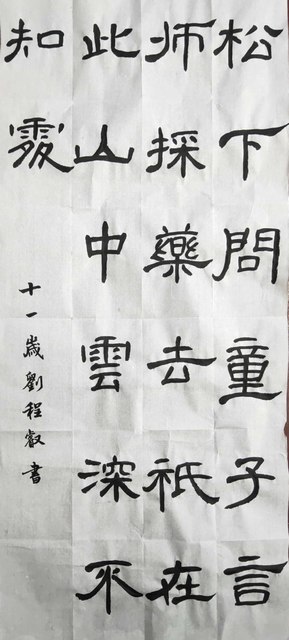 松下問童子言
师採藥去祇在
此山中雲深不
知處
十一歲劉程叡書